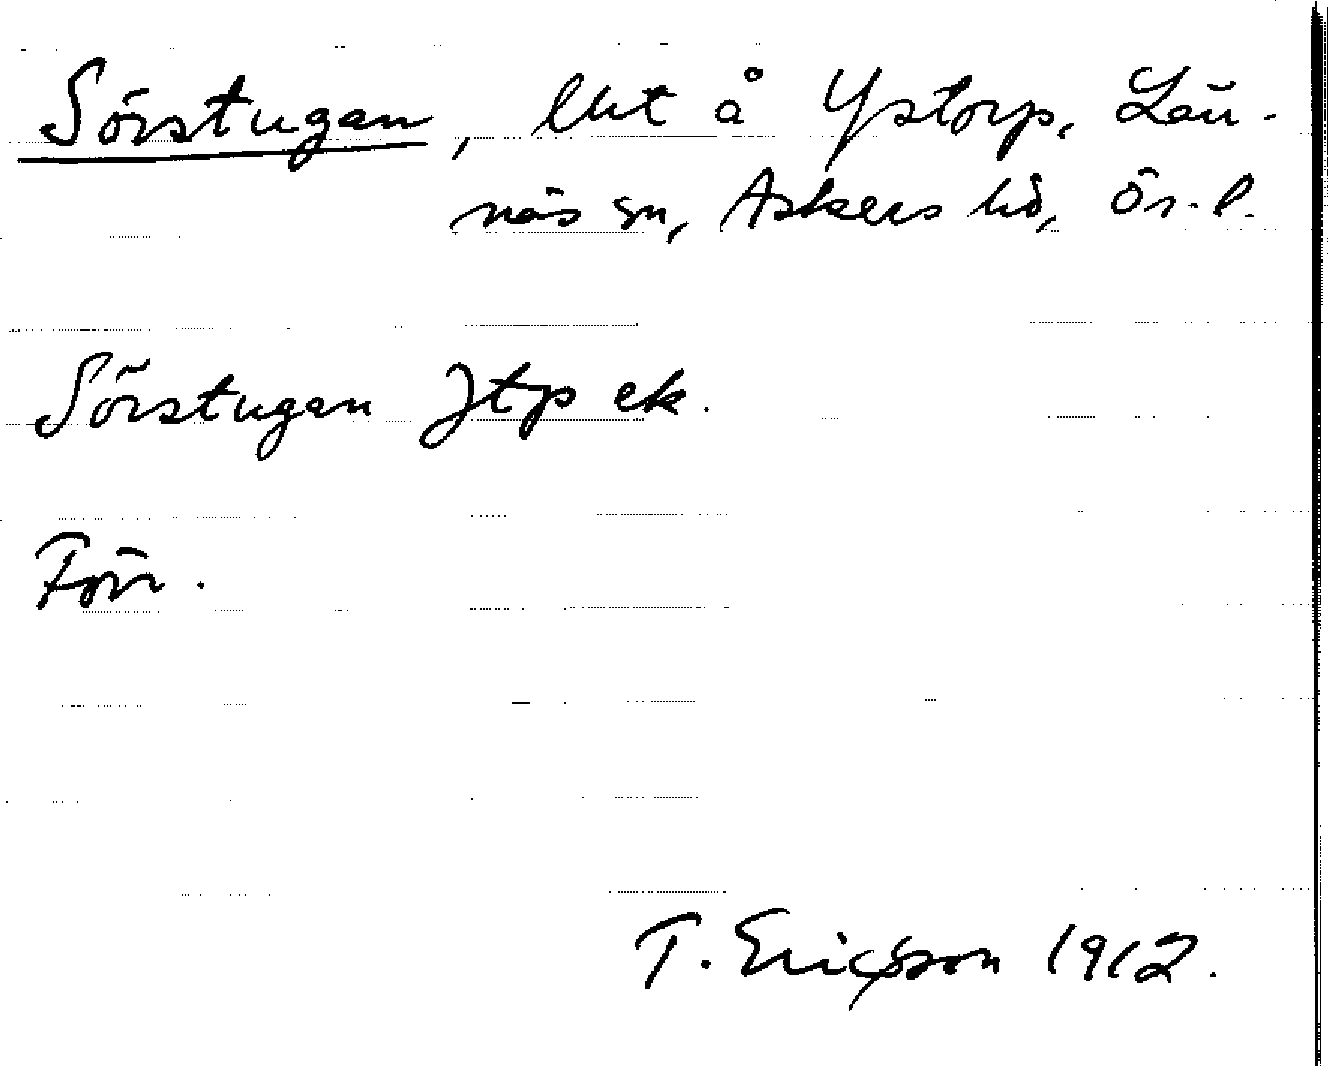 Sörstugan, lht å Ystorp, Län-
näs sn, Askers hd, Ör. l.
Sörstugan Jtp ek.
Förr.
T. Ericsson 1912.